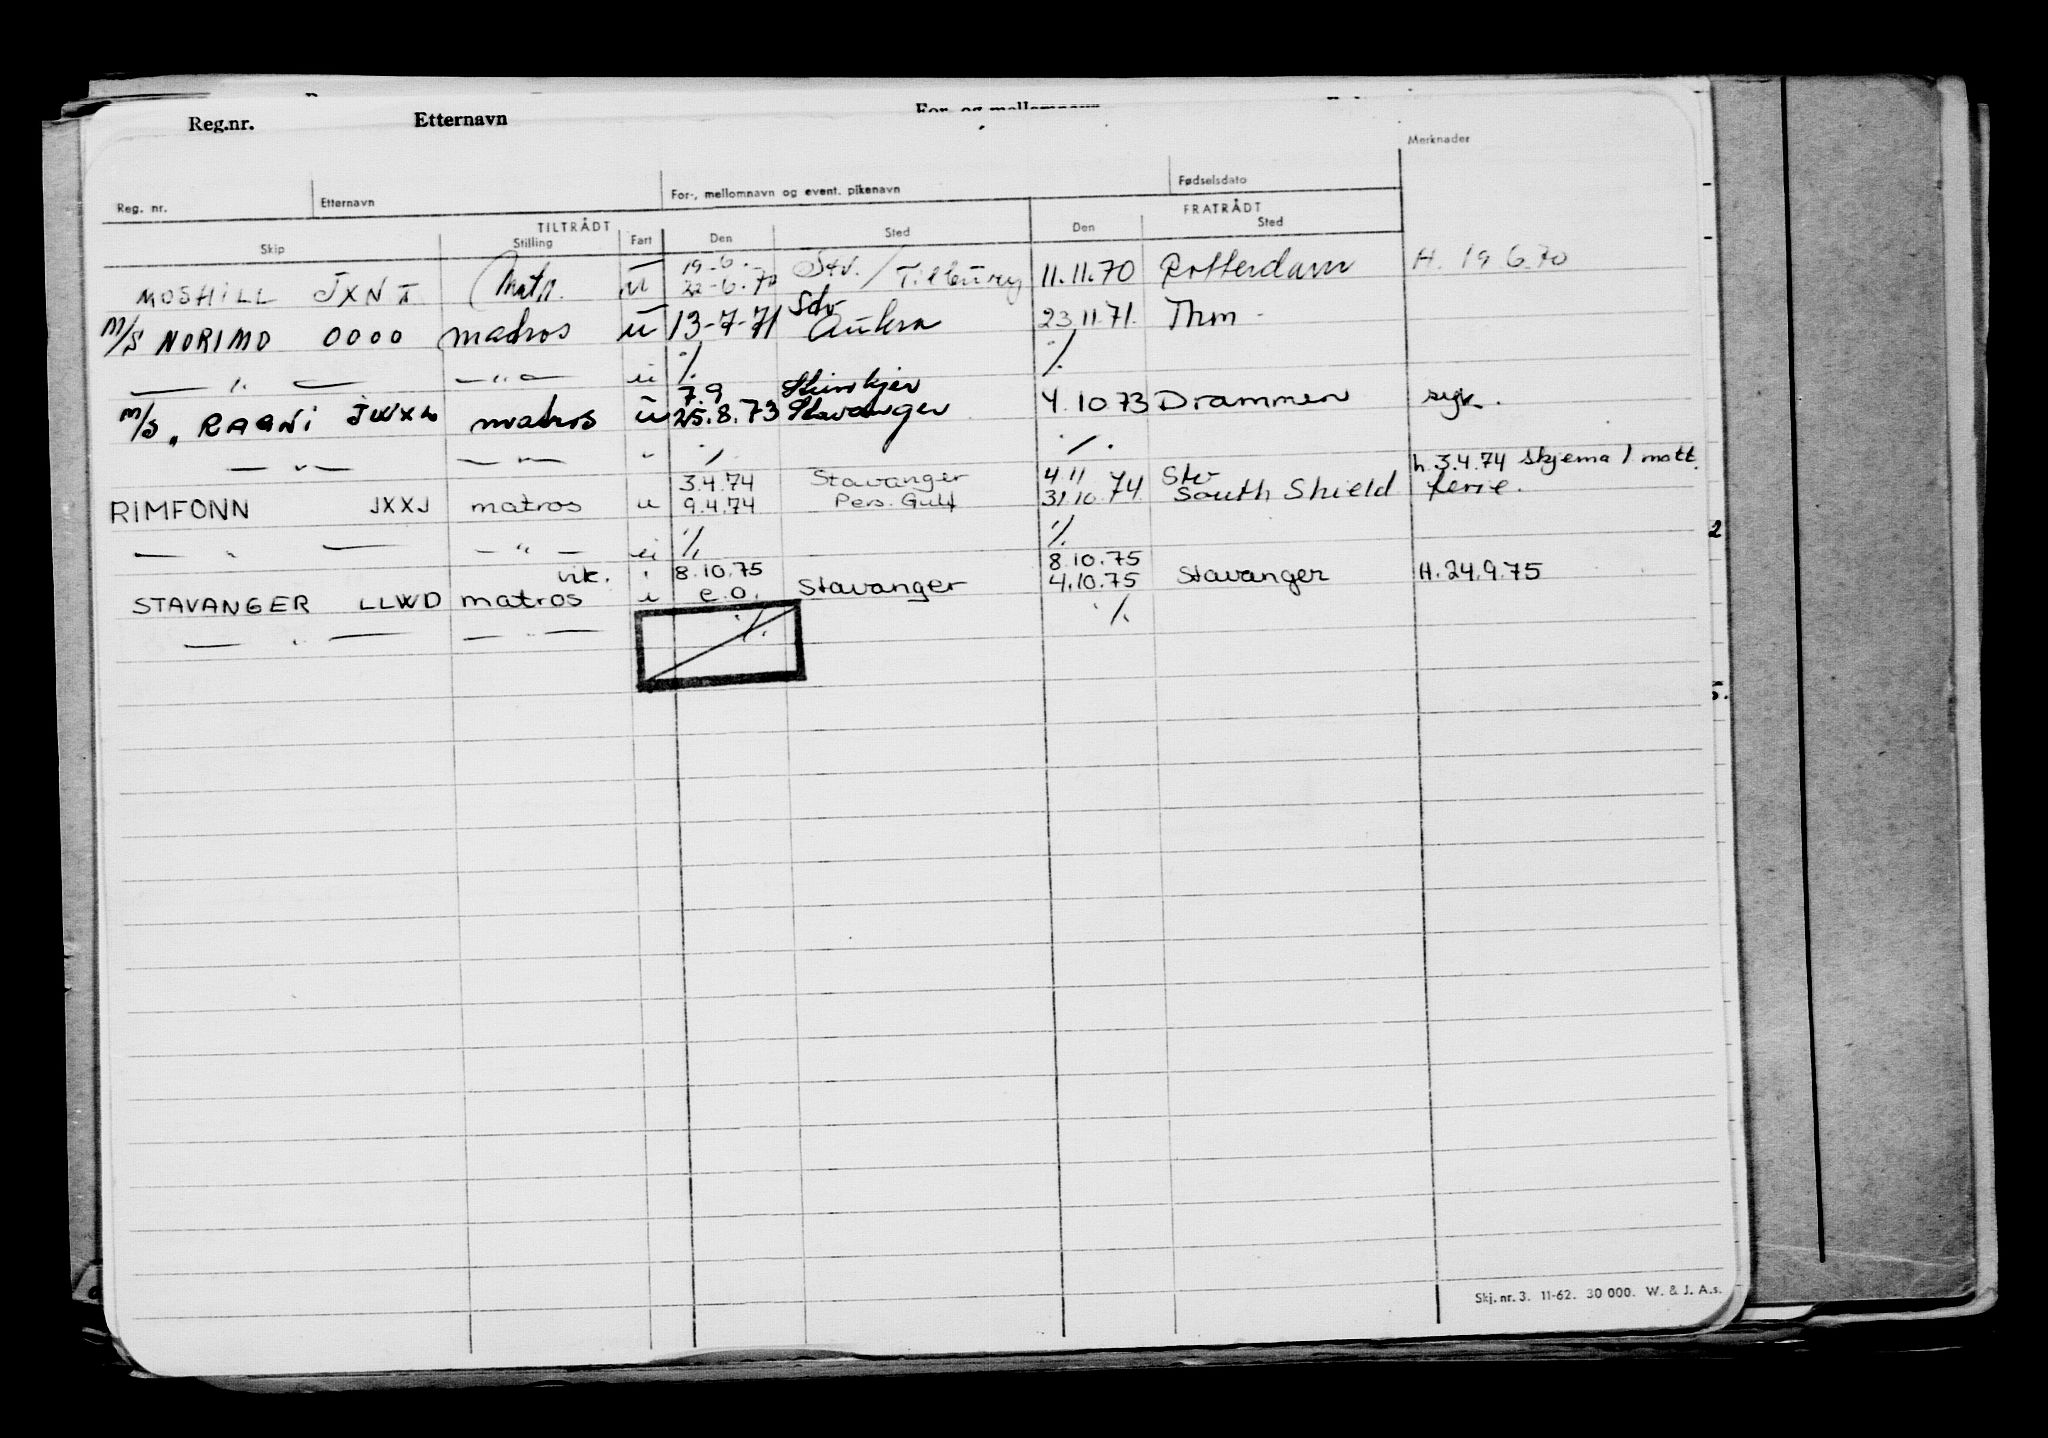 Reg.nr. Etternavn For- og mellomnavn
Merknader
Reg. nr. Etternavn For-, mellomnavn og event. pikenavn Fødselsdato
TILTRÅDT FRATRÅDT
Skip Stilling Fart Den Sted Den Sted
19-6- Stv.
MOSHILL JXNI Matr. u 22-6-70 / Tilbury 11.11.70 Rotterdam H. 19.6.70
Sdv
M/S NORIMO OOOO matros u 13-7-71 Aukra 23.11.71. Thm
— " — — " — u ./. ./.
7.9 Steinkjer
M/S „RAGNI JWXL matros u 25.8.73 Stavanger 4.10.73 Drammen syk.
— " — — " — " ./. ./.
3.4.74 Stavanger 4.11 Stv h. 3.4.74 skjema 1 mott.
RIMFONN JXXJ matros u 9.4.74 Pers. Gulf 31.10.74 South Shield ferie.
— " — — " — u ./. ./.
vik. i 8.10.75 8.10.75
STAVANGER LLWD matros u e.o. Stavanger 4.10.75 Stavanger H. 24.9.75
— " — — " — ./. ./.
2
5.
Skj. nr. 3. 11-62. 30 000. W. & J. A.s.